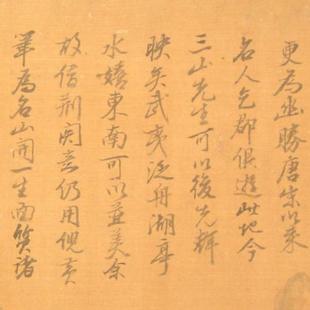 更為幽勝唐宋以来
名人乞郡俱遊此地今
三山先生可以後先輝
映矣武夷泛舟湖亭
水嬉東南可以並美余
故信荆関意仍用倪黄
筆為名山開一生面質諸